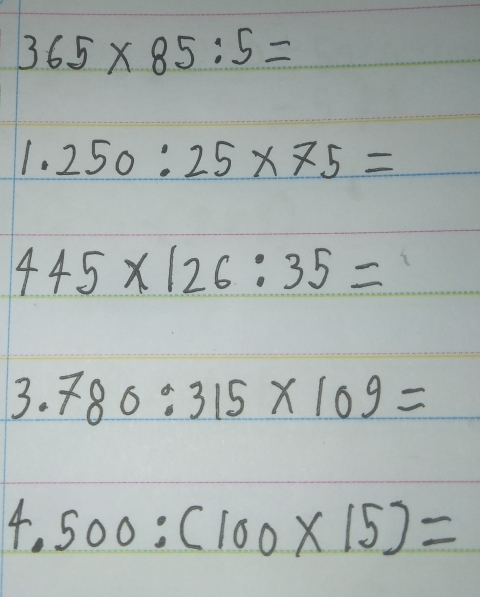 365 × 85 : 5 =
1.250 : 25 × 75 =
445 × 126 : 35 =
3.780 : 315 × 109 =
4.500 : (100 × 15) =